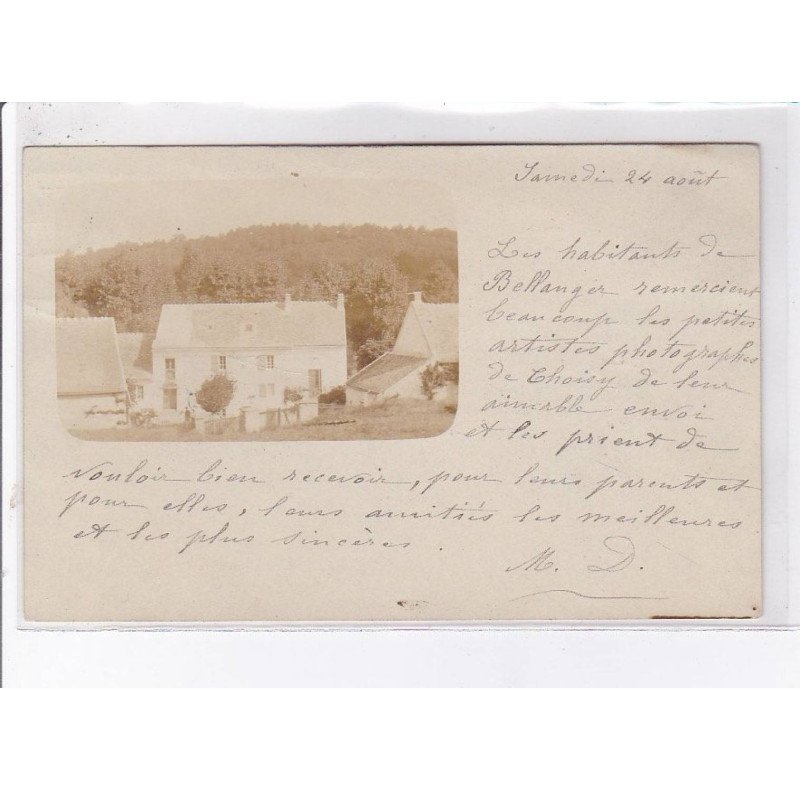 Samedi 24 août
Les habitants de
Bellanger remercient
beaucoup les petites
artistes photographes
de Choisy de leur
aimable envoi
et les prient de
vouloir bien recevoir, pour leurs parents et
pour elles, leurs amitiés les meilleures
et les plus sincères.
M. D.